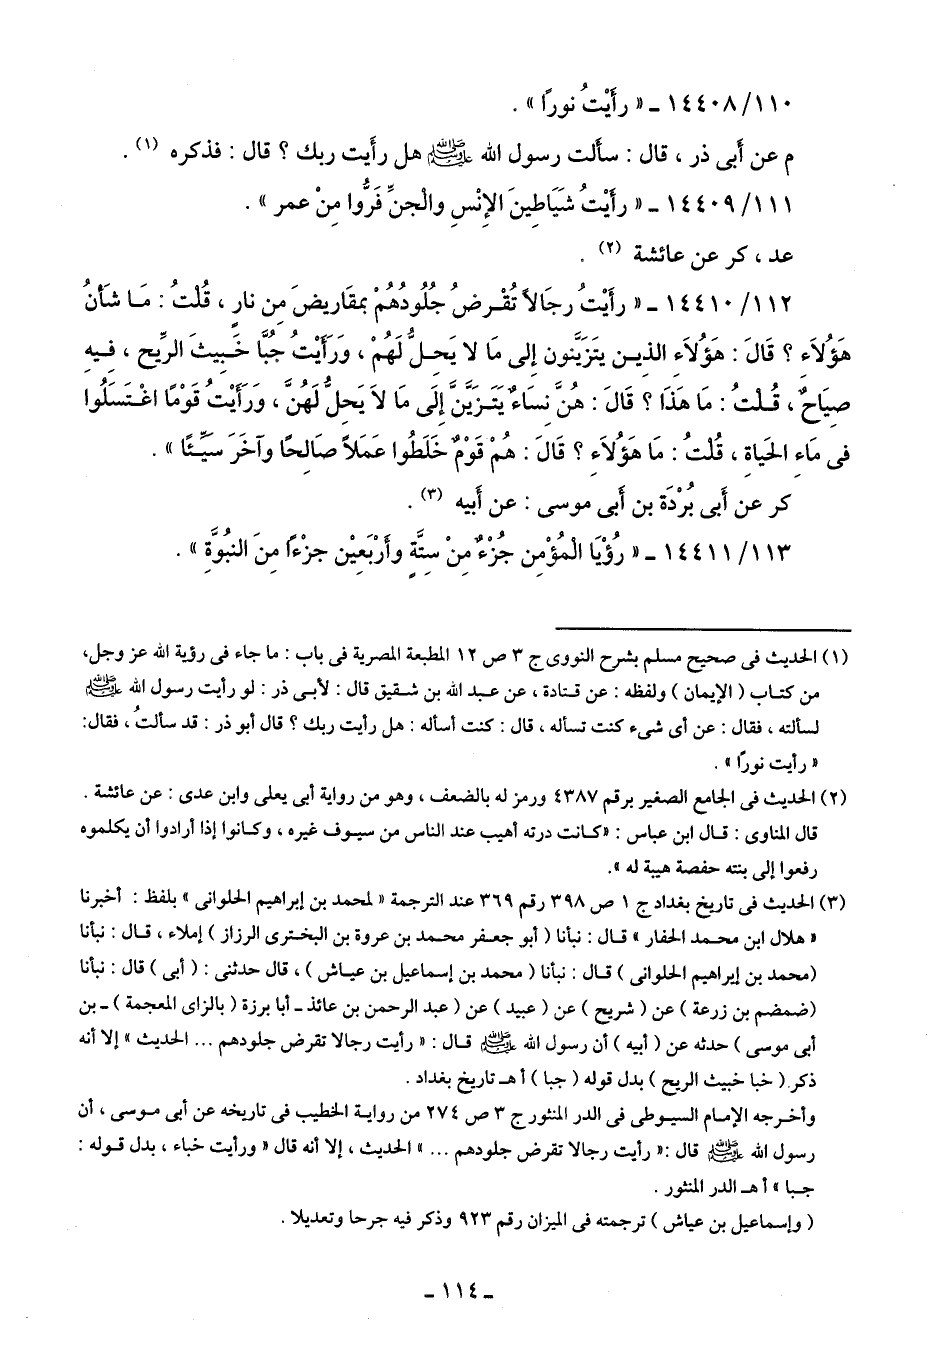 ١١٠/ ١٤٤٠٨ ـ « رأَيْتُ نُورًا » .
م عن أَبى ذر ، قال : سألت رسول الله ﷺ هل رأَيت ربك ؟ قال : فذكره (١) .
١١١/ ١٤٤٠٩ ـ « رأَيْتُ شَيَاطِينَ الإِنْسِ والْجنِّ فَرُّوا مِنْ عمر » .
عد ، كر عن عائشة (٢) .
١١٢/ ١٤٤١٠ ـ « رأَيْتُ رِجَالاً تُقْرضُ جُلُودُهُمْ بمقَاريضَ مِن نارٍ ، قُلْتُ : مَا شأْنُ
هَؤُلاَءِ ؟ قَالَ : هَؤُلاَءِ الذين يتزَيَّنون إلى مَا لا يَحِلُّ لَهُمْ ، ورَأَيْتُ جُبًّا خَبِيثَ الرِّيحِ ، فِيهِ
صيَاحٌ ، قُلْتُ : مَا هَذَا ؟ قَالَ : هُنَّ نساءٌ يَتَزيَّنَّ إلَى مَا لاَ يَحِلُّ لَهُنَّ ، ورَأَيْتُ قَوْمًا اغْتَسَلُوا
فى مَاءِ الحَياةِ ، قُلْتُ : مَا هَؤُلاَءِ ؟ قَالَ : هُمْ قَوْمٌ خَلَطُوا عَمَلاً صَالحًا وآخَرَ سَيِّئًا » .
كر عن أَبى بُرْدَة بن أَبى موسى : عن أَبيه (٣) .
١١٣/ ١٤٤١١ ـ « رُؤْيَا المُؤْمِنِ جُزْءٌ مِنْ ستَّةٍ وأَرْبَعِيْن جزْءًا مِنَ النبُوَّةِ » .
(١) الحديث فى صحيح مسلم بشرح النووى ج ٣ ص ١٢ المطبعة المصرية فى باب : ما جاء فى رؤية الله عز وجل،
من كتاب ( الإيمان ) ولفظه : عن قتادة ، عن عبد الله بن شقيق قال : لأبى ذر : لو رأيت رسول الله ﷺ
لسألته ، فقال : عن أى شىء كنت تسأله ، قال : كنت أسأله : هل رأيت ربك ؟ قال أبو ذر : قد سألتُ ، فقال:
« رأيت نورًا » .
(٢) الحديث فى الجامع الصغير برقم ٤٣٨٧ ورمز له بالضعف ، وهو من رواية أبى يعلى وابن عدى : عن عائشة .
قال المناوى : قال ابن عباس : «كانت درته أهيب عند الناس من سيوف غيره ، وكانوا إذا أرادوا أن يكلموه
رفعوا إلى بنته حفصة هيبة له ».
(٣) الحديث فى تاريخ بغداد ج ١ ص ٣٩٨ رقم ٣٦٩ عند الترجمة « لمحمد بن إبراهيم الحلوانى » بلفظ : أخبرنا
« هلال ابن محمد الحفار » قال : نبأنا ( أبو جعفر محمد بن عروة بن البخترى الرزاز ) إملاء ، قال : نبأنا
(محمد بن إبراهيم الحلوانى ) قال : نبأنا ( محمد بن إسماعيل بن عياش ) ، قال حدثنى : ( أبى ) قال : نبأنا
(ضمضم بن زرعة ) عن ( شريح ) عن ( عبيد ) عن ( عبد الرحمن بن عائذ ـ أبا برزة ( بالزاى المعجمة ) ـ بن
أبى موسى ) حدثه عن ( أبيه ) أن رسول الله ﷺ قال : « رأيت رجالا تقرض جلودهم ... الحديث » إلا أنه
ذكر ( خبا خبيث الريح ) بدل قوله ( جبا ) أهـ تاريخ بغداد .
وأخرجه الإمام السيوطى فى الدر المنثور ج ٣ ص ٢٧٤ من رواية الخطيب فى تاريخه عن أبى موسى ، أن
رسول الله ﷺ قال :« رأيت رجالا تقرض جلودهم ... » الحديث ، إلا أنه قال « ورأيت خباء ، بدل قوله :
جبا » أهـ الدر المنثور .
( وإسماعيل بن عياش ) ترجمته فى الميزان رقم ٩٢٣ وذكر فيه جرحا وتعديلا .
ـ ١١٤ ـ